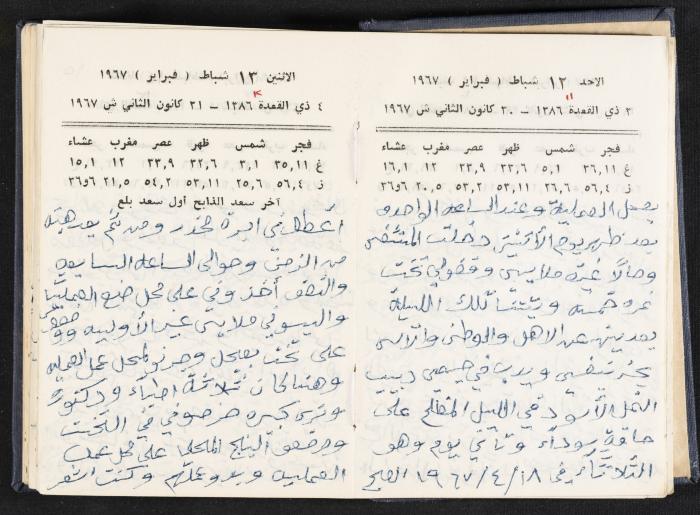 الاحد ١٢ شباط ( فبراير ) ١٩٦٧
٣ ذي القعدة ١٣٨٦ – ٣٠ كانون الثاني ش ١٩٦٧
١١
فجر شمس ظهر عصر مغرب عشاء
غ ٣٦,١١ ٥,١ ٣٣,٦ ٣٣,٩ ١٢ ١٦,١
ز ٥٦,٤ ٢٦,٦ ٥٣,١١ ٥٣,٢ ٢٠,٥ ٣٦و٦
بعمل العملية وعند الساعه الواحده
بعد ظهر يوم الأثنين دخلت المستشفى
وحالاً غيرة ملابسي وقفولي تخت
نمره خمسه وبتتنا تلك الليلة
بعدين عن الاهل والوطن والناس
يجر تنفسي ويدب في جسمي دبيب
النمل الأسود في الليل المظلم على
حافة سوداء وثاني يوم وهو
الثلاثاء في ١٩٦٧/٤/١٨ الصبح
الاثنين ١٣ شباط ( فبراير ) ١٩٦٧
٤ ذي القعدة ١٣٨٦ – ٣١ كانون الثاني ش ١٩٦٧
فجر شمس ظهر عصر مغرب عشاء
غ ٣٥,١١ ٣,١ ٣٢,٦ ٣٣,٩ ١٢ ١٥,١
ز ٥٦,٤ ٢٥,٦ ٥٣,١١ ٥٤,٢ ٢١,٥ ٣٦و٦
آخر سعد الذابح أول سعد بلع
أعطاني ابرة مخدر ومن ثم بعد هنيه
من الزمن وحوالى الساعه السابعه
والنصف أخذوني على محل صنع العمليات
والبسوني ملابس غير الأوليه
على تخت بعجل وجرو لمحل عمل العمليه
وهناك كان ثلاثة اطباء ودكتورة
في التخت
ووضعو البنج المحلي على محل عمل
العمليه وبدو عملهم وكنت اشعر